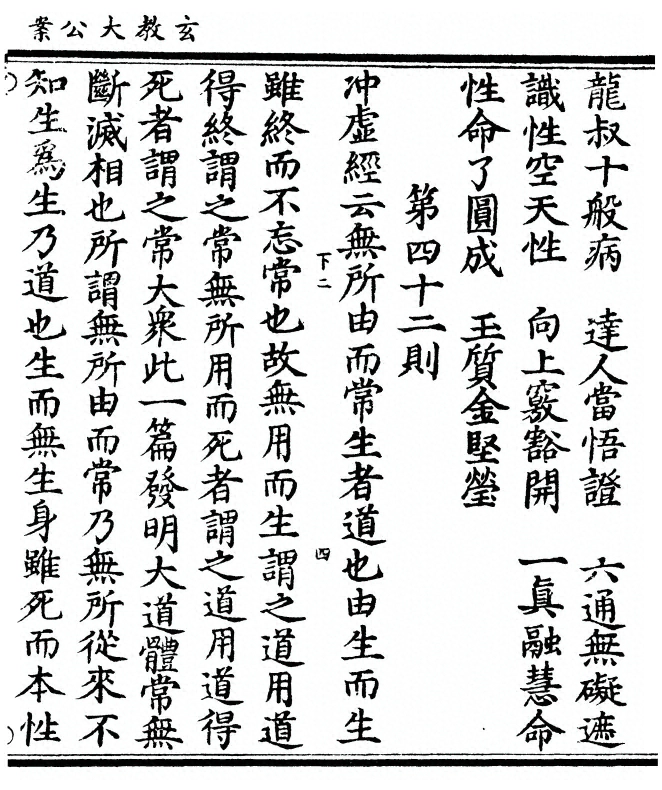 玄教大公案
龍叔十般病　達人當悟證　六通無礙遮
識性空天性　向上竅豁開　一眞融慧命
性命了圓成　玉質金堅瑩
第四十二則
冲虛經云無所由而常生者道也由生而生
下二　四
雖終而不忘常也故無用而生謂之道用道
得終謂之常無所用而死者謂之道用道得
死者謂之常大衆此一篇發明大道體常無
斷滅相也所謂無所由而常乃無所從來不
知生爲生乃道也生而無生身雖死而本性